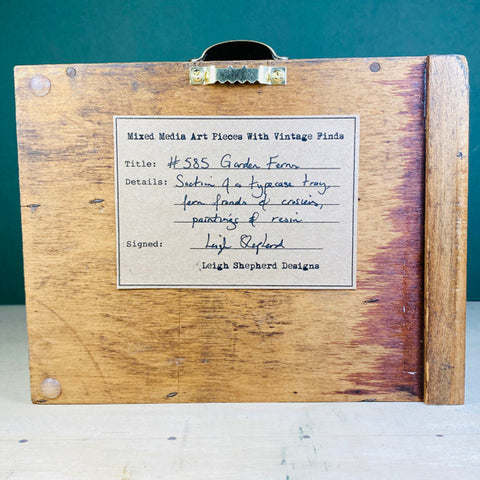 Mixed Media Art Pieces With Vintage Finds
Title: #585 Garden Ferns
Details: Section of a typecase tray,
fern fronds & crosiers,
paintings & resin
Signed: Leigh Shepherd
Leigh Shepherd Designs